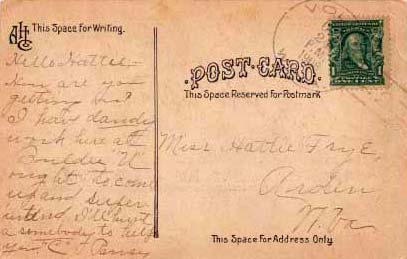 AHC
This Space For Writing.
Hello Hattie.
How are you
getting on?
I have dandy
work here at
"U"
ought to come
up and super
intend. I'll hunt
a somebody to help
you. "C" + Pansy
POST CARD.
This Space Reserved for Postmark
VO
1
1
Miss Hattie Frye,
Arden
W. Va
This Space For Address Only.